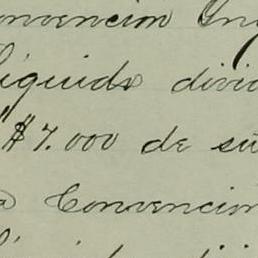 onvencion Ing
líquido divid
"$7.000 de su
a Convencion